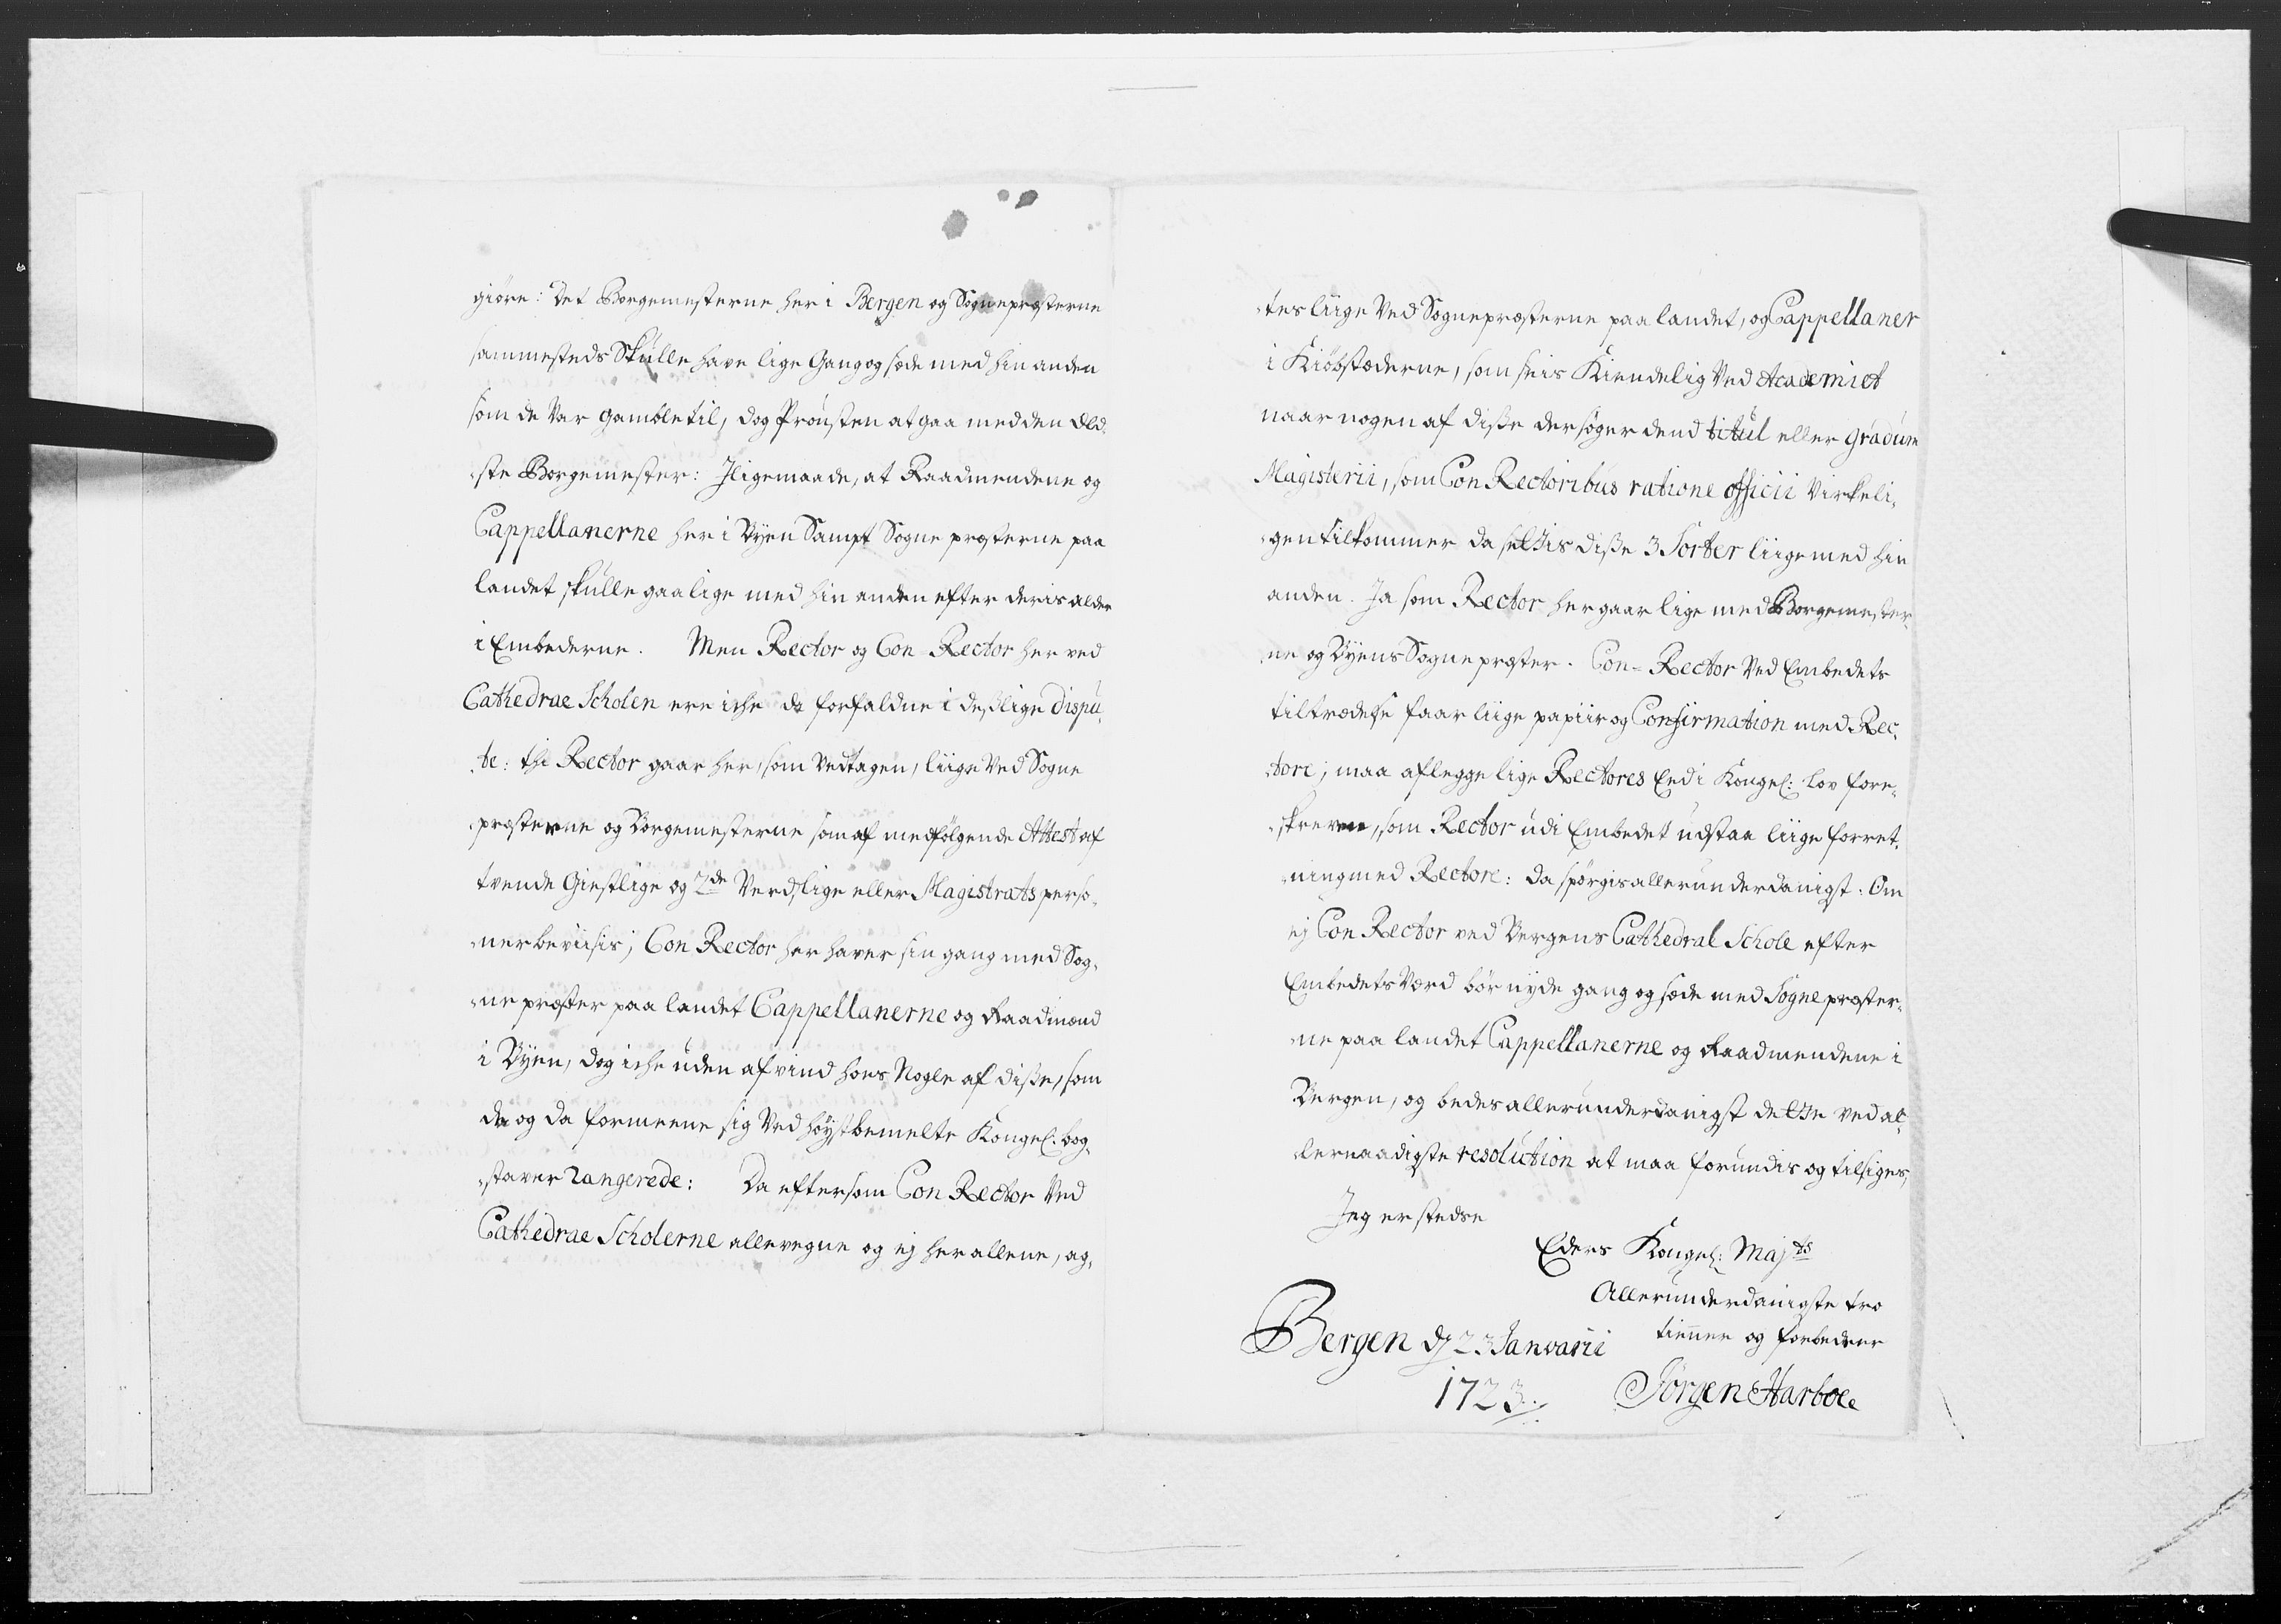 giöre: Det Borgemesterne her i Bergen og Sognepræsterne
sammesteds Skulle have lige Gang og sæde med hin anden
som de Var gamble til, dog Prousten at gaa med den Æld-
ste Borgemester: Jligemaade, at Raadmendene og
Cappellanerne her i Byen Sampt Sogne præsterne paa
landet skulle gaa lige med hin anden efter deris alder
i Embederne. Men Rector og Con-Rector her ved
Cathedrae Scholen ere iche da forfaldne i deslige dispu-
te: thi Rector gaar her, som Vedtagen, liige Ved Sogne
præsterne og Borgemesterne som af medfølgende Attest af
tvende Giestlige og 2de Verdslige eller Magistrats perso-
ner beviisis; Con Rector her haver sin gang med Sog-
ne præster paa landet Cappellanerne og Raadmænd
i Byen, dog iche uden afvind hoes Nogle af diße, som
da og da formeene sig Ved høystbemelte Kongel: bog-
staver rangerede: Da eftersom Con Rector Ved
Cathedrae Scholerne allevegne og ej her allene, ag-
tes liige Ved Sognepræsterne paa landet, og Cappellaner
i Kiøbstæderne, som seis Kiendelig Ved Academiet
naar nogen af diße der søger dend titul eller gradum
Magisterii, som Con Rectoribus ratione officii Virkeli-
gen tilkommer da settis diße 3 Sorter liige med hin
anden. Ja som Rector her gaar lige med Borgemester-
ne og Byens Sognepræster. Con-Rector Ved Embedets
tiltrædelse faar liige papiir og Confirmation med Rec-
tore; maa aflegge lige Rectores Eed i Kongel: lov fore-
skreven, som Rector udi Embedet udstaa liige forret-
ning med Rectore: da spørgis allerunderdanigst: Om
ej Con Rector ved Bergens Cathedral Schole efter
Embedets Værd bør nyde gang og sæde med Sogne præster-
ne paa landet Cappellanerne og Raadmendene i
Bergen, og bedes allerunderdanigst dette ved al-
lernaadigste resolution at maa forundis og tilsiges,
Jeg er stedse
Eders Kongel: Majts
Allerunderdanigste tro
tienner og forbeder
Bergen d 23 Janvarii
1723.
Jörgen Harboe